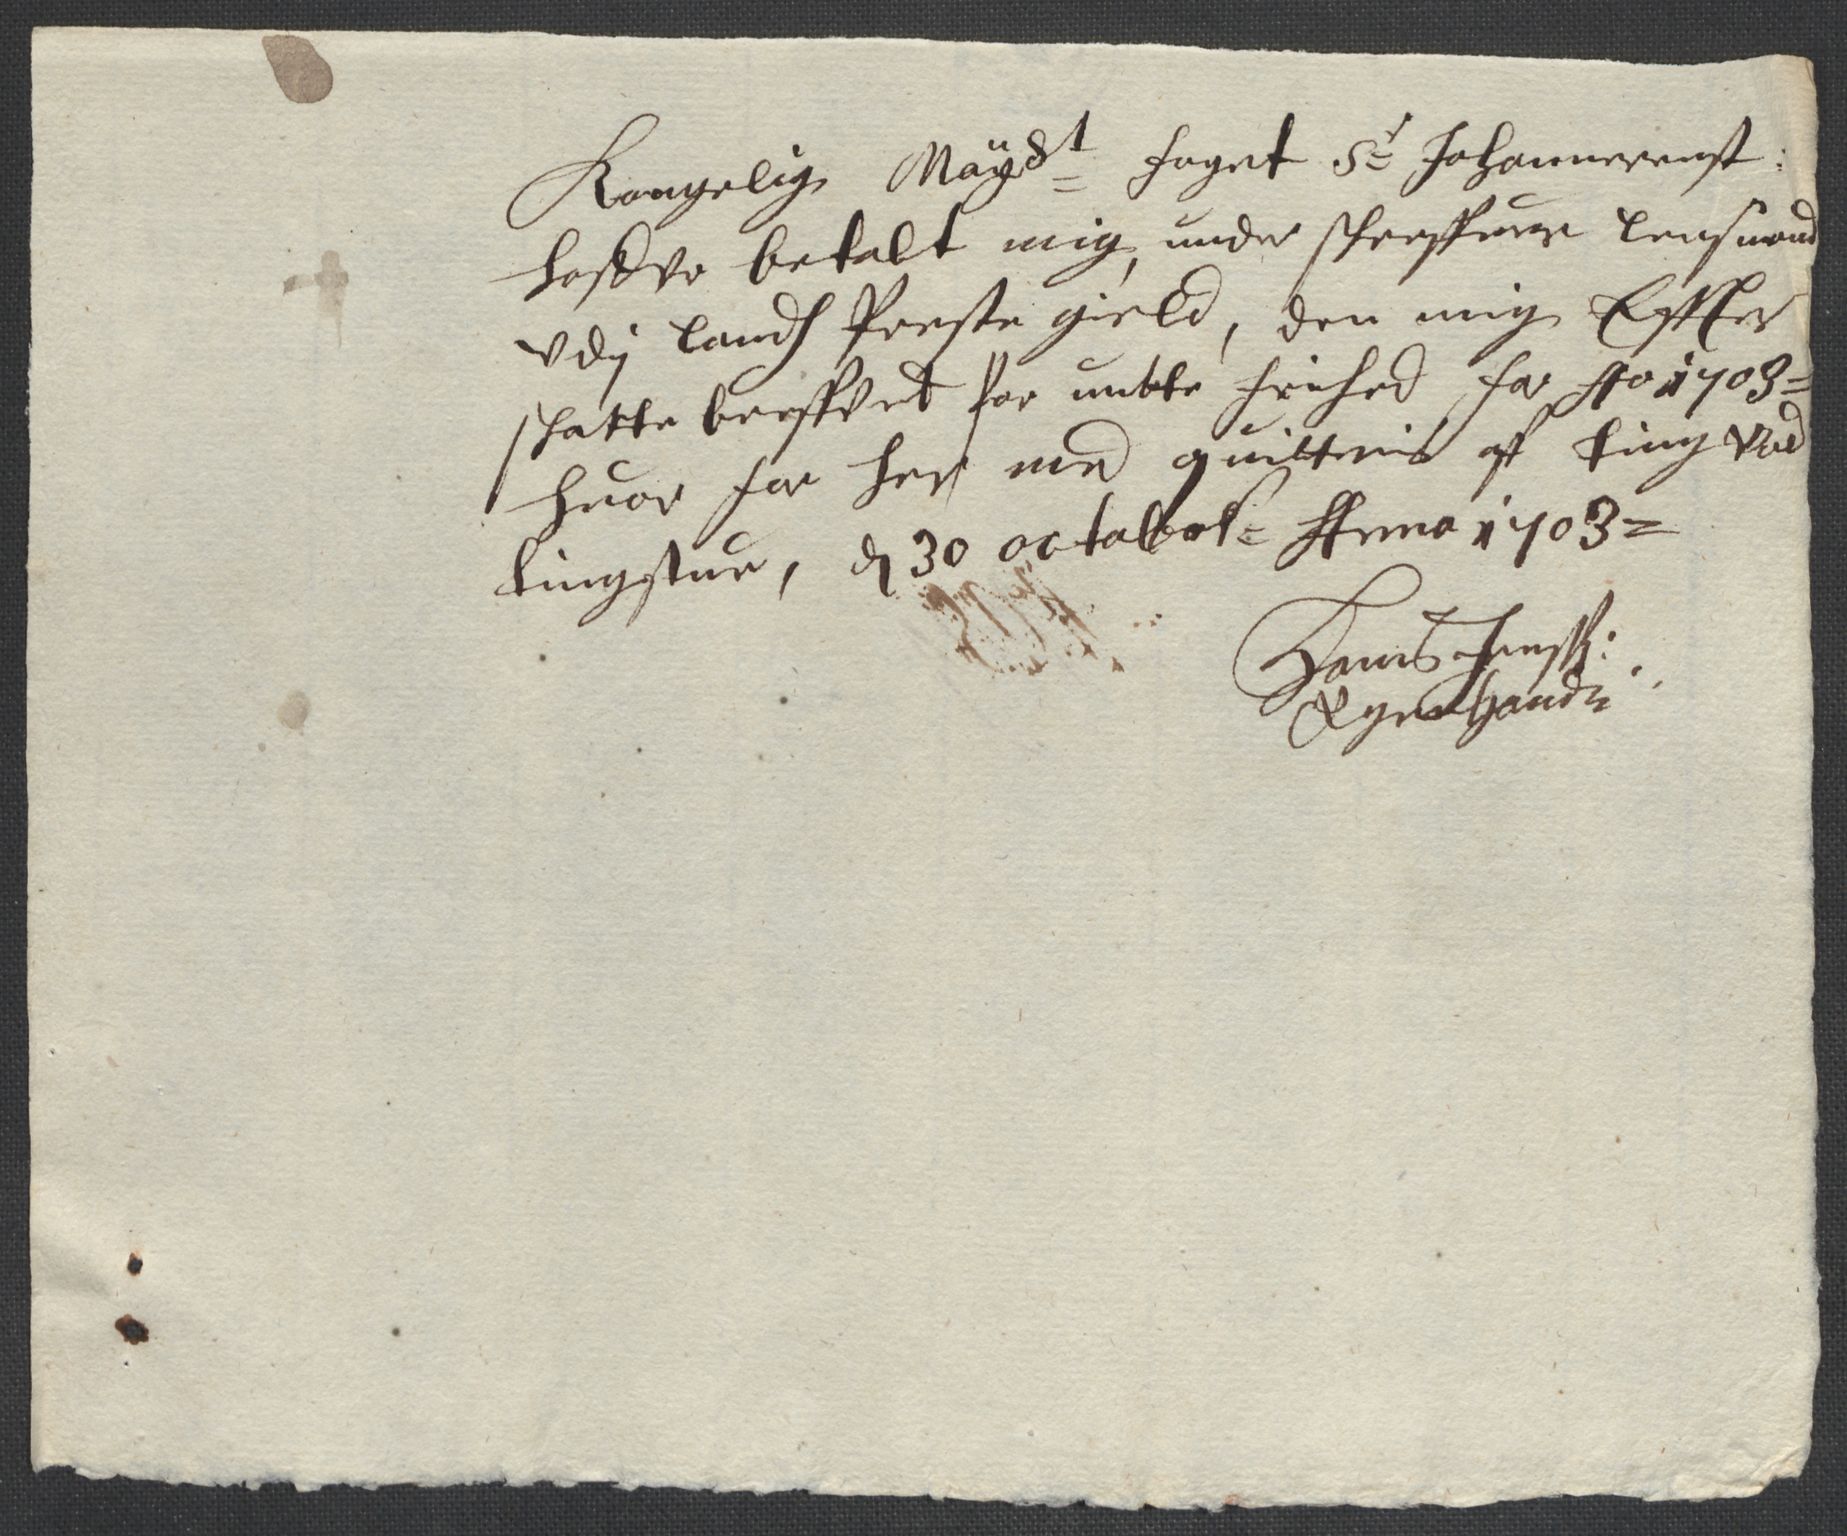 Kongelig Mayst= foget Sr= Johannernst:
hafver betalt mig under schreffvene lensmand
udj Lands Preste gield, den mig Effter
schatte breffvet for undte frihed for Ao 1703=
huor for her med quitteris af ting ved
tingstue, d 30 octobr= Anno 1703=
Hans Jenss:
Egen haand